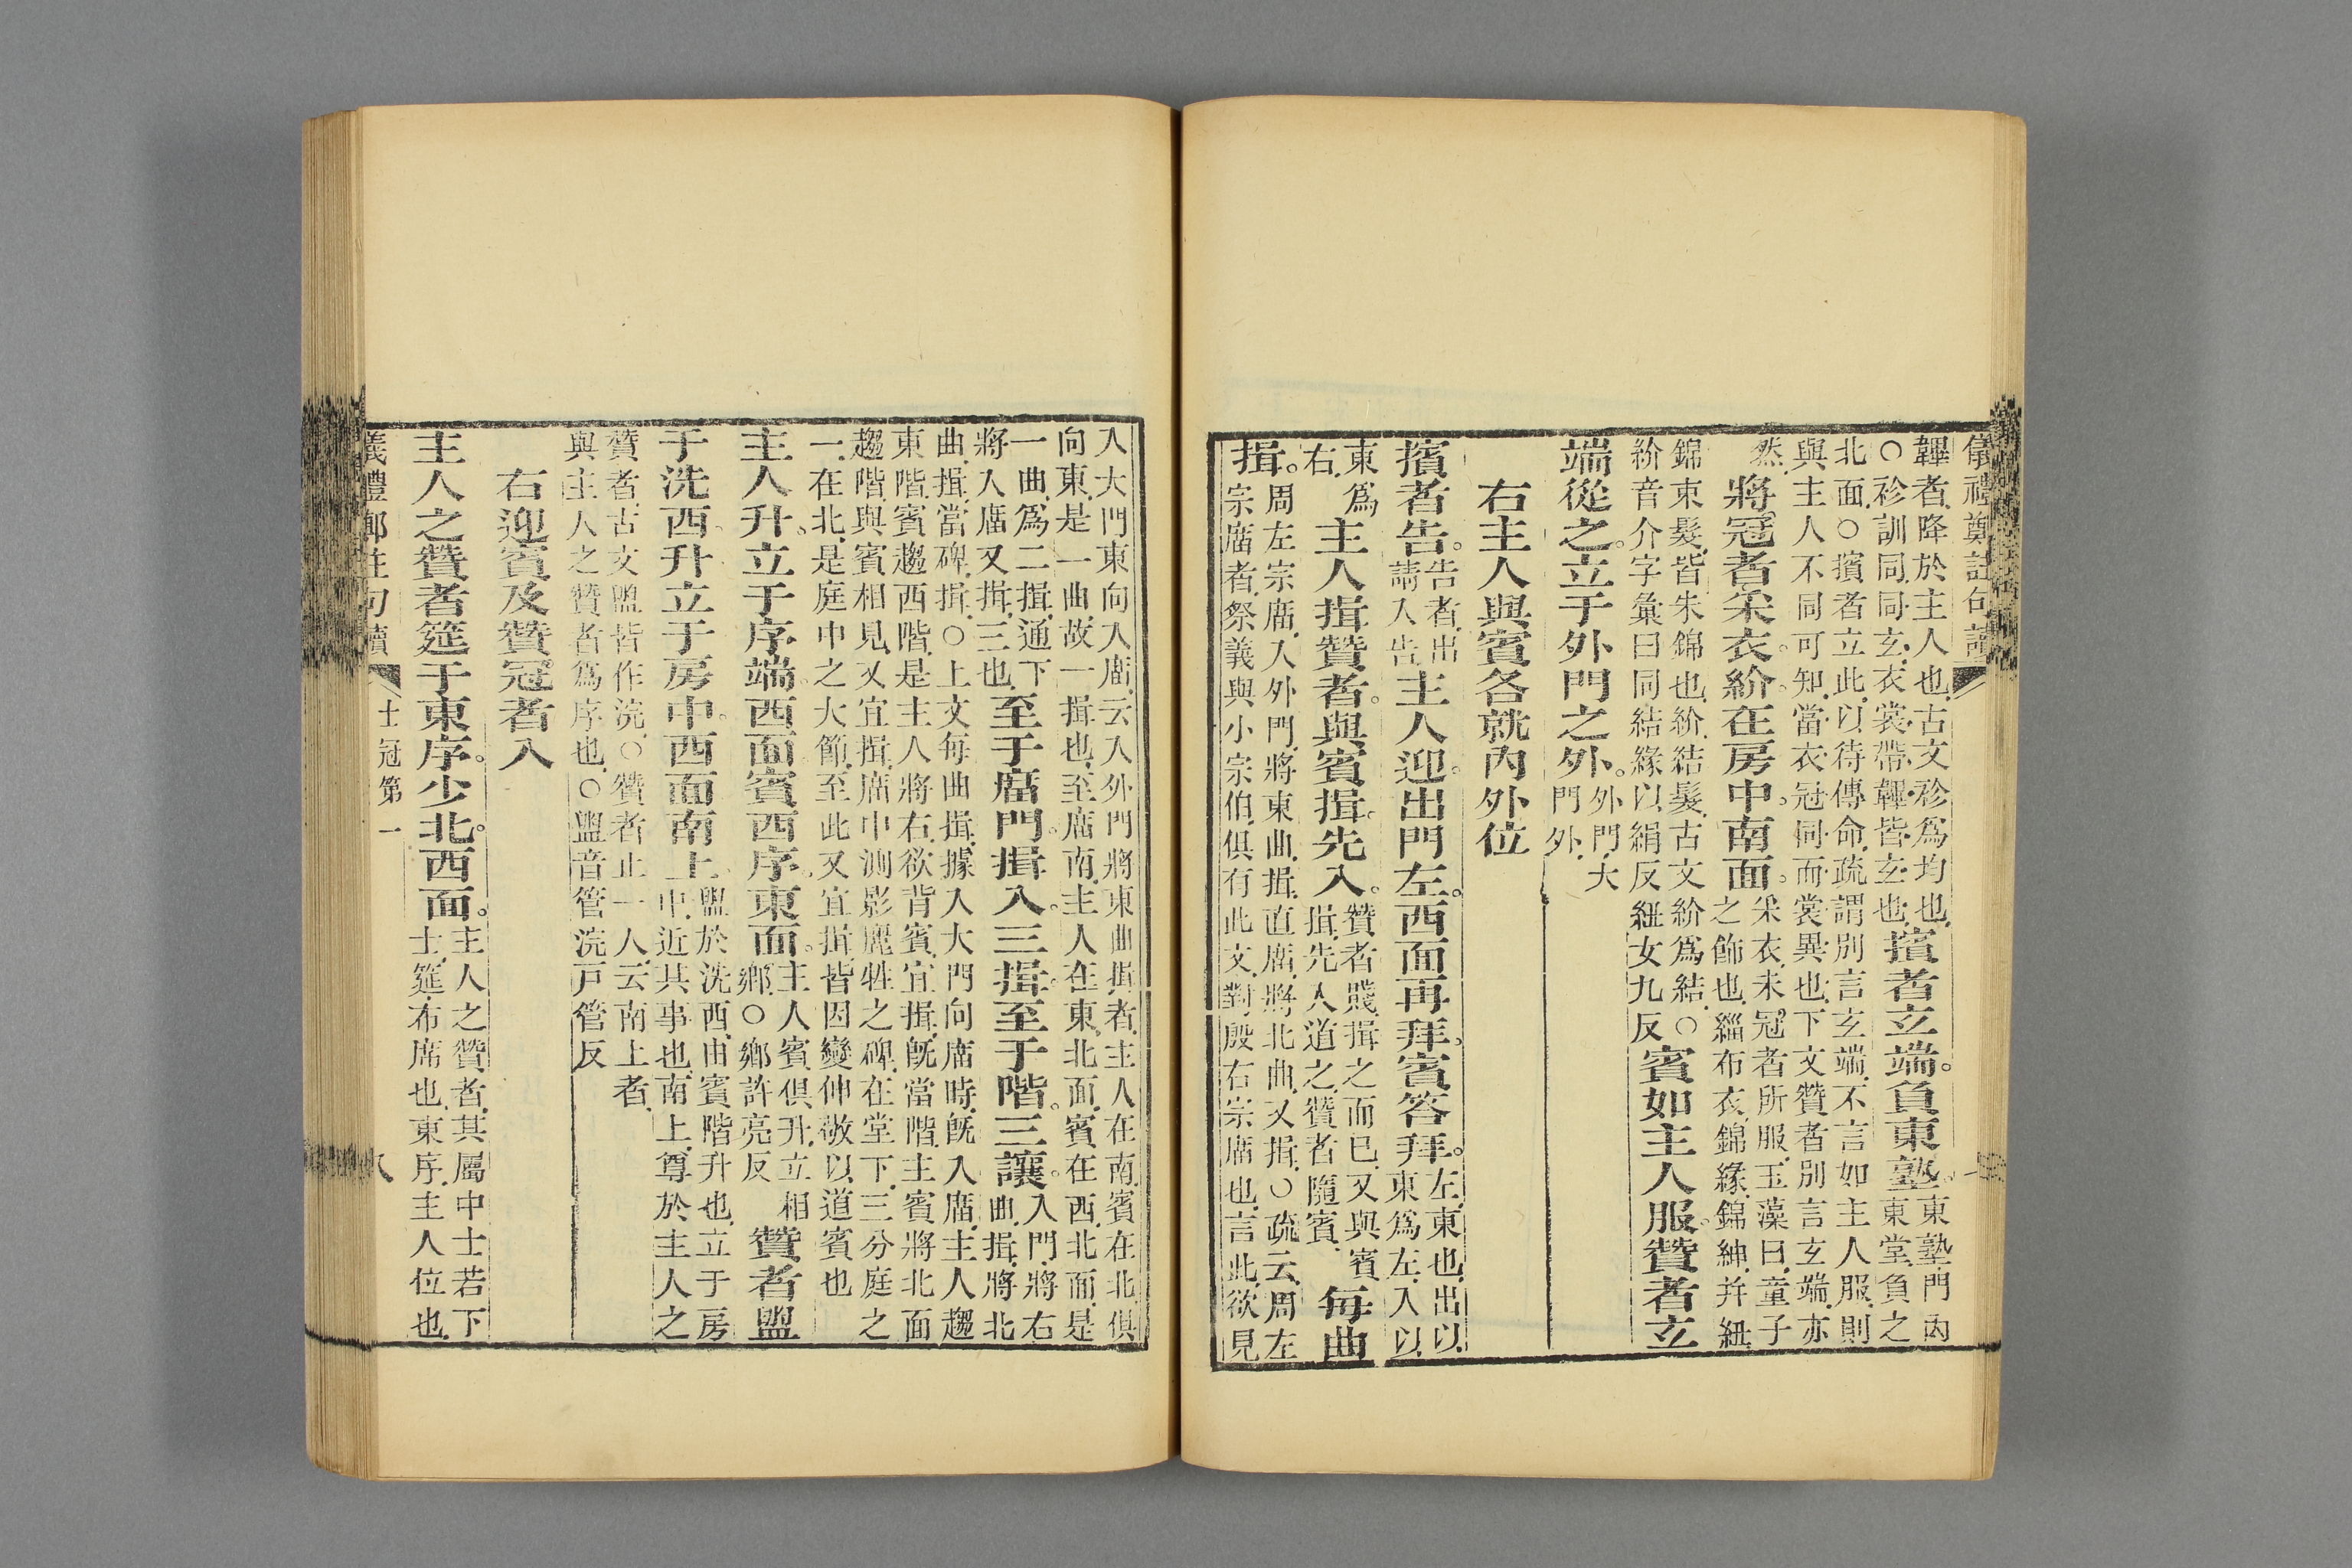 儀禮鄭註句讀
韠者降於主人也古文袗爲均也
○袗訓同同玄衣裳帶韠皆玄也
擯者玄端負東塾
東塾門內
東堂負之
北面○擯者立此以待傳命疏謂別言玄端不言如主人服則
與主人不同可知當衣冠同而裳異也下文贊者別言玄端亦
然
將冠者采衣紒在房中南面
采衣未冠者所服玉藻曰童子
之飾也緇布衣錦緣錦紳并紐
錦束髮皆朱錦也紒結髮古文紒爲結○
紒音介字彙曰同結緣以絹反紐女九反
賓如主人服贊者玄
端從之立于外門之外
外門大
門外
右主人與賓各就內外位
擯者告
告者出
請入告
主人迎出門左西面再拜賓答拜
左東也出以
東爲左入以
東爲
右
主人揖贊者與賓揖先入
贊者賤揖之而已又與賓
揖先入道之贊者隨賓
每曲
揖
周左宗廟入外門將東曲揖直廟將北曲又揖○疏云周左
宗廟者祭義與小宗伯俱有此文對殷右宗廟也言此欲見
入大門東向入廟云入外門將東曲揖者主人在南賓在北俱
向東是一曲故一揖也至廟南主人在東北面賓在西北面是
一曲爲二揖通下
將入廟又揖三也
至于廟門揖入三揖至于階三讓
入門將右
曲揖將北
曲揖當碑揖○上文每曲揖據入大門向廟時旣入廟主人趨
東階賓趨西階是主人將右欲背賓宜揖旣當階主賓將北面
趨階與賓相見又宜揖廟中測影麗牲之碑在堂下三分庭之
一在北是庭中之大節至此又宜揖皆因變伸敬以道賓也
主人升立于序端西面賓西序東面
主人賓俱升立相
鄉○鄉許亮反
贊者盥
于洗西升立于房中西面南上
盥於洗西由賓階升也立于房
中近其事也南上尊於主人之
贊者古文盥皆作浣○贊者止一人云南上者
與主人之贊者爲序也○盥音管浣戸管反
右迎賓及贊冠者入
主人之贊者筵于東序少北西面
主人之贊者其屬中士若下
士筵布席也東序主人位也
儀禮鄭註句讀
士冠第一
八